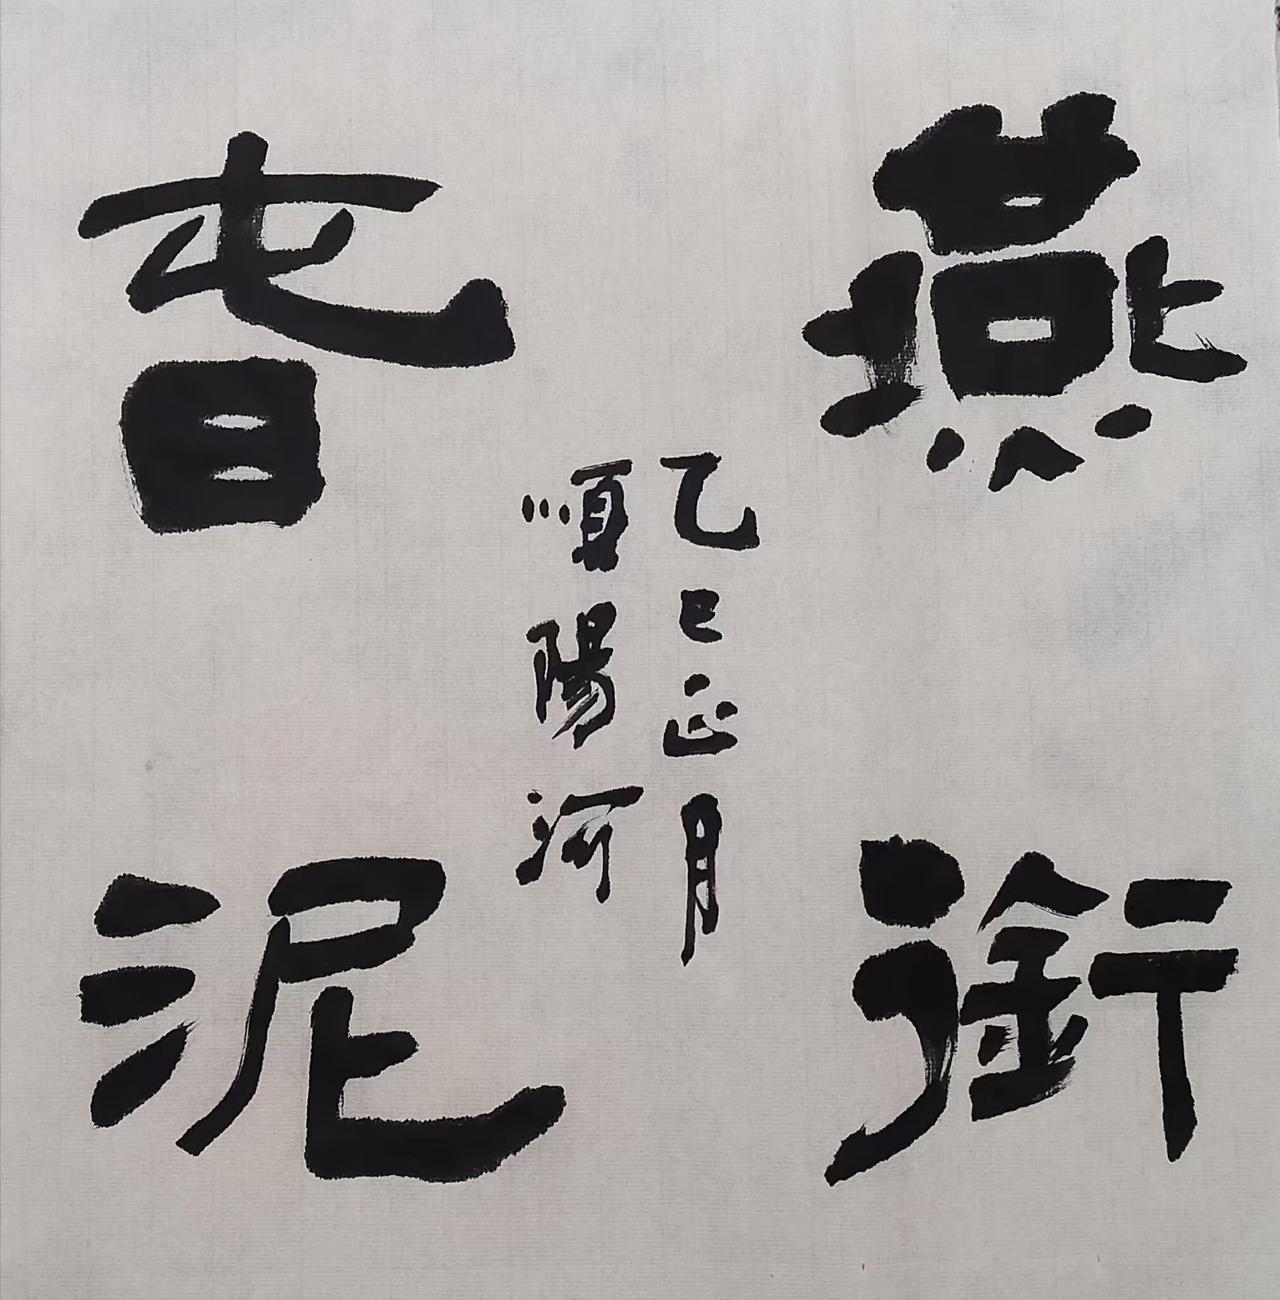 燕銜
旾泥
乙巳正月
順陽河